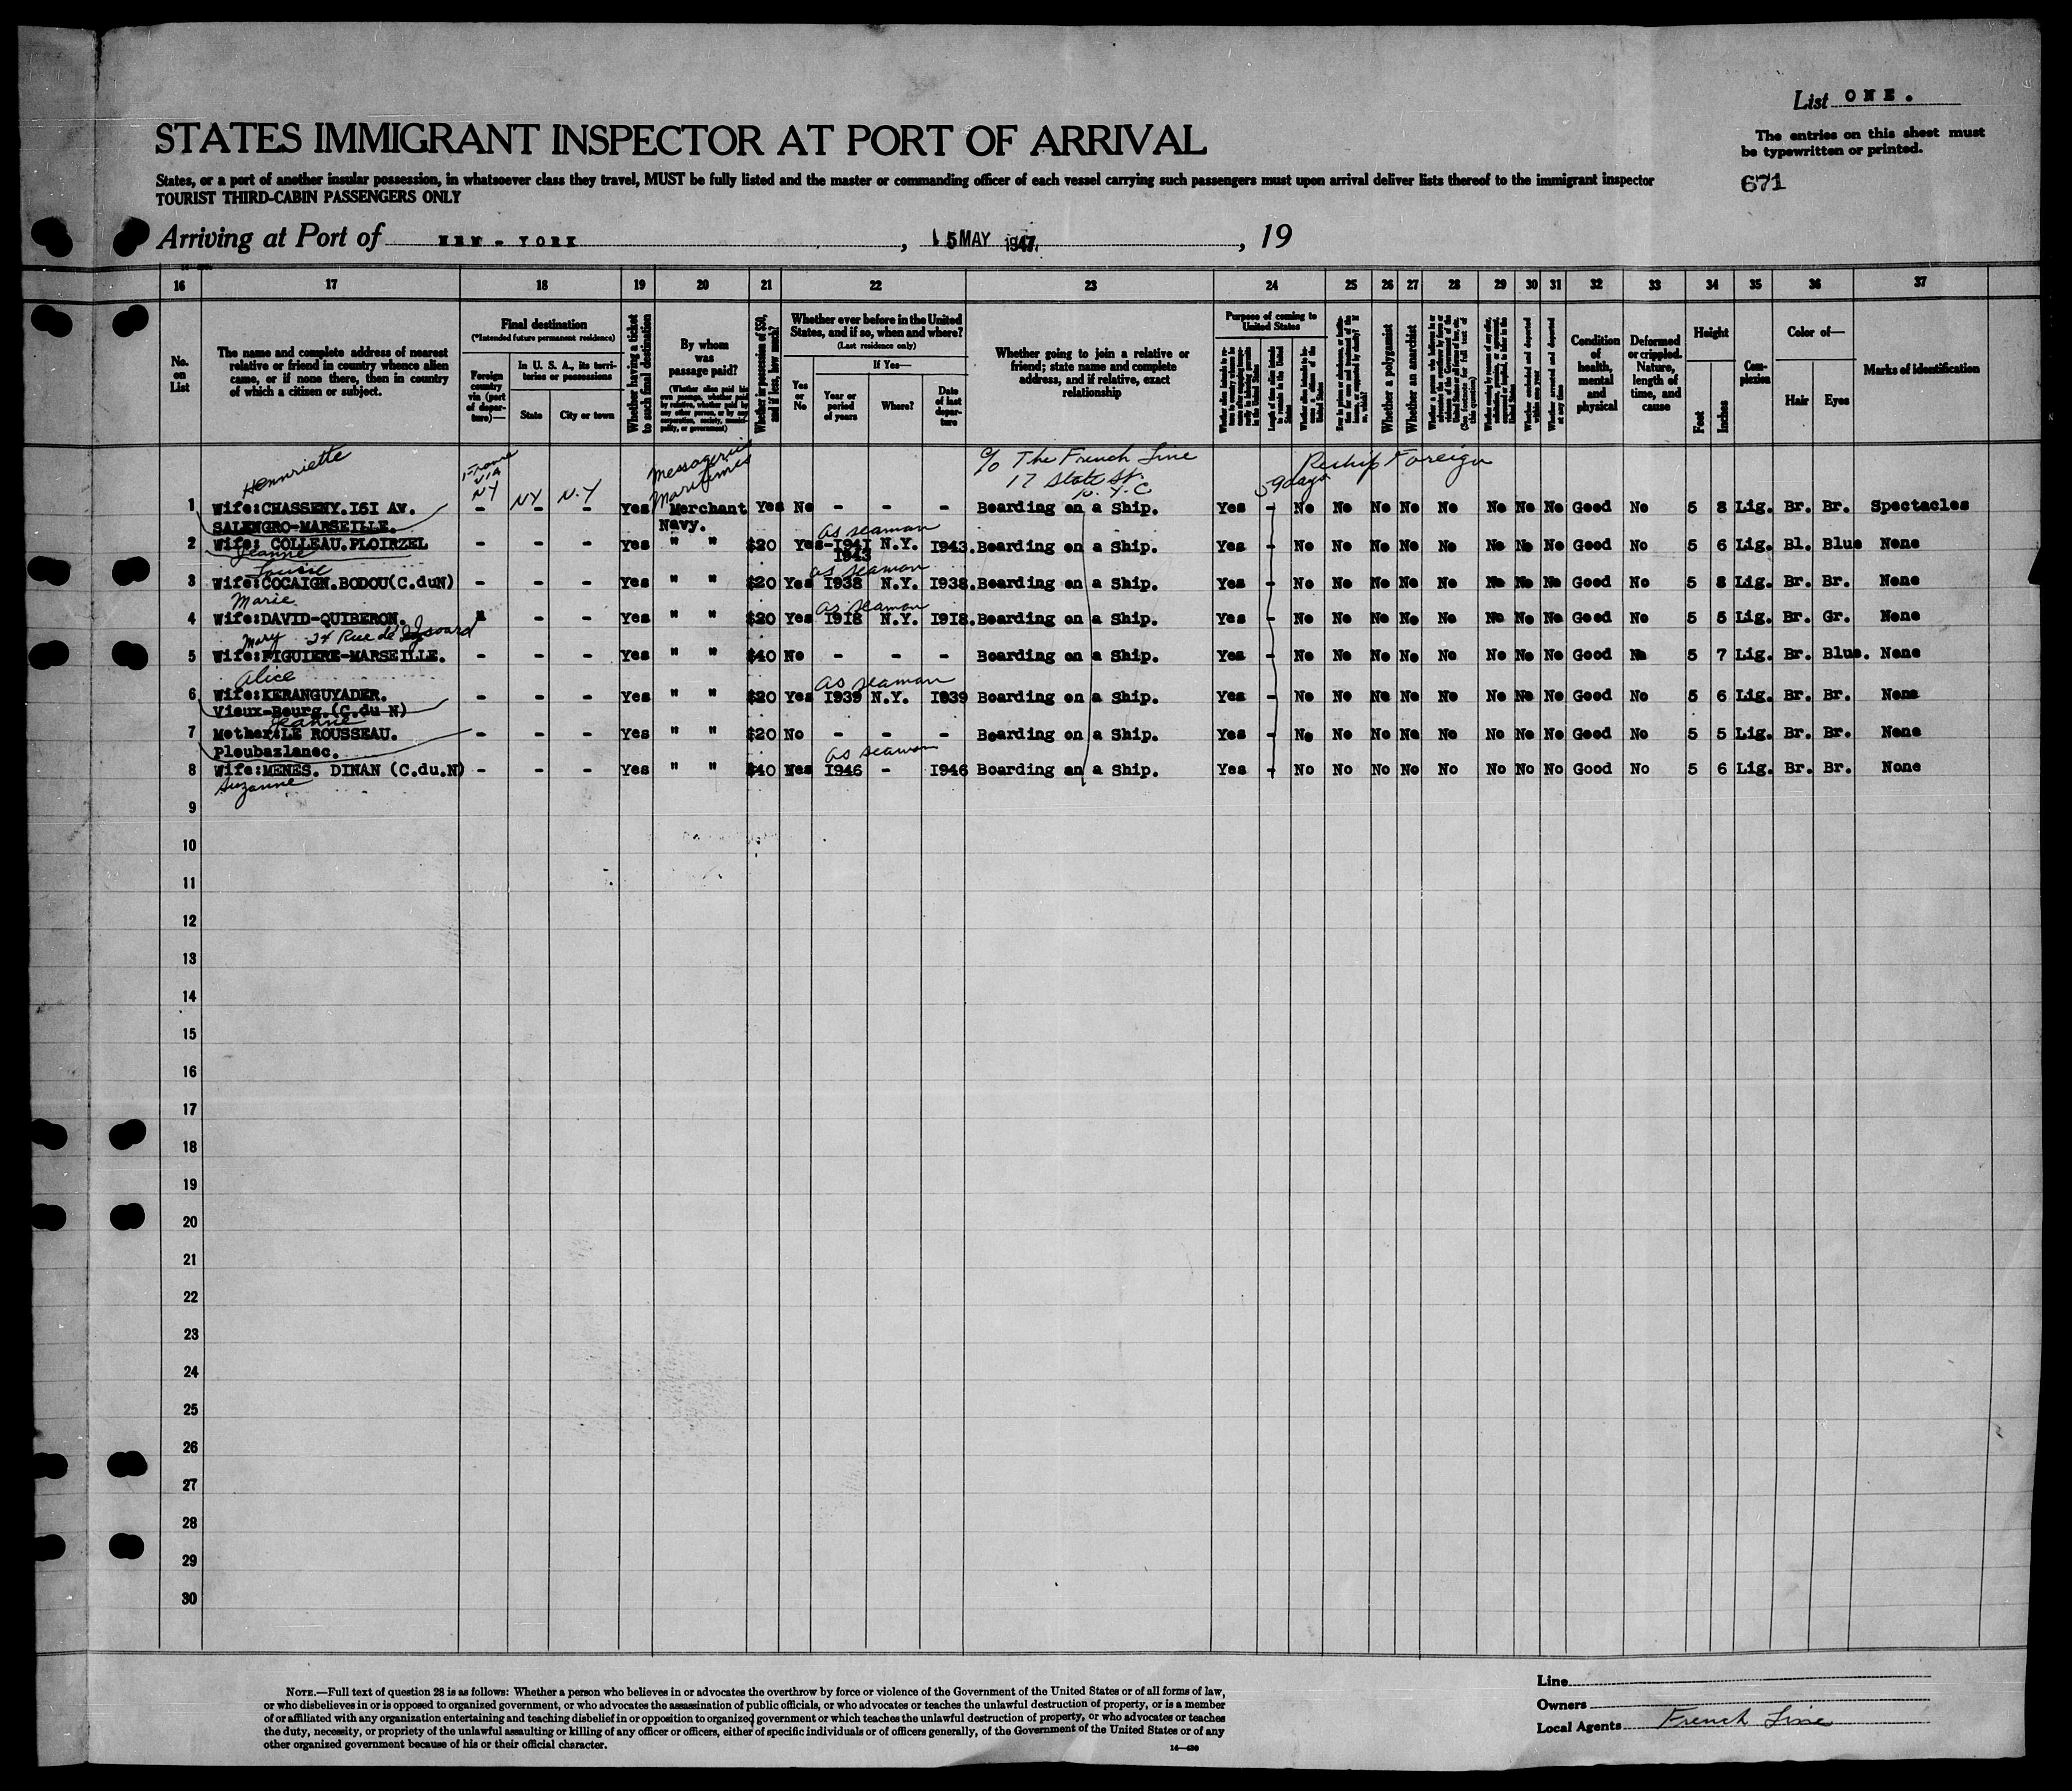 List ONE.
STATES IMMIGRANT INSPECTOR AT PORT OF ARRIVAL
The entries on this sheet must
be typewritten or printed.
States, or a port of another insular possession, in whatsoever class they travel, MUST be fully listed and the master or commanding officer of each vessel carrying such passengers must upon arrival deliver lists thereof to the immigrant inspector
TOURIST THIRD-CABIN PASSENGERS ONLY
671
Arriving at Port of NEW - YORK, 15 MAY 1947, 19
16 17 18 19 20 21 22 23 24 25 26 27 28 29 30 31 32 33 34 35 36 37
No.
on
List
The name and complete address of nearest
relative or friend in country whence alien
came, or if none there, then in country
of which a citizen or subject.
Final destination
(*Intended future permanent residence)
Foreign
country
via (port
of depar-
ture)—
In U. S. A., its terri-
tories or possessions
State
City or town
Whether having a ticket
to such final destination
By whom
was
passage paid?
(Whether alien paid his
own passage, whether paid
by relative, whether paid by
any other person, or by any
corporation, society, munici-
pality, or government)
Whether in possession of $50,
and if less, how much?
Whether ever before in the United
States, and if so, when and where?
(Last residence only)
Yes
or
No
If Yes—
Year or
period
of years
Where?
Date
of last
depar-
ture
Whether going to join a relative or
friend; state name and complete
address, and if relative, exact
relationship
Purpose of coming to
United States
Length of time alien intends
to remain in the United
States
Whether alien intends to be-
come a citizen of the
United States
Whether a polygamist
Whether an anarchist
(See footnote for full text of
this question)
Whether arrested and deported
within one year
Whether arrested and deported
at any time
Condition
of
health,
mental
and
physical
Deformed
or crippled.
Nature,
length of
time, and
cause
Height
Feet
Inches
Com-
plexion
Color of—
Hair
Eyes
Marks of identification
Henriette
France
via
NY NY N.Y
Messageries
Maritimes
c/o The French Line
17 State St.
N.Y.C
59 days
Reship Foreign
1 Wife:CHASSENY.I5I Av. - - - Yes Merchant Yes No - - - Boarding on a Ship. Yes - No No No No No No No No Good No 5 8 Lig. Br. Br. Spectacles
SALENGRO-MARSEILLE. Navy.
as seaman
2 Wife: COLLEAU.PLOIRZEL - - - Yes " " $20 Yes-I94I N.Y. I943. Boarding on a Ship. Yes - No No No No No No No No Good No 5 6 Lig. Bl. Blue None
Jeanne 1943
Louise as seaman
3 Wife:COCAIGN.BODOU(C.duN) - - - Yes " " $20 Yes I938 N.Y. I938. Boarding on a Ship. Yes - No No No No No No No No Good No 5 8 Lig. Br. Br. None
Marie as seaman
4 Wife:DAVID-QUIBERON. - - - Yes " " $20 Yes I9I8 N.Y. I9I8. Boarding on a Ship. Yes - No No No No No No No No Good No 5 5 Lig. Br. Gr. None
Mary 24 Rue de
5 Wife:FIGUIERE-MARSEILLE. - - - Yes " " $40 No - - - Boarding on a Ship. Yes - No No No No No No No No Good No 5 7 Lig. Br. Blue. None
Alice as seaman
6 Wife:KERANGUYADER. - - - Yes " " $20 Yes I939 N.Y. I939 Boarding on a Ship. Yes - No No No No No No No No Good No 5 6 Lig. Br. Br. None
Vieux-Bourg.(C.du N)
Jeanne
7 Mother:LE ROUSSEAU. - - - Yes " " $20 No - - - Boarding on a Ship. Yes - No No No No No No No No Good No 5 5 Lig. Br. Br. None
Ploubazlanec.
as seaman
8 Wife:MENES. DINAN (C.du.N) - - - Yes " " $40 Yes I946 - I946 Boarding on a Ship. Yes - No No No No No No No No Good No 5 6 Lig. Br. Br. None
Suzanne
9
10
11
12
13
14
15
16
17
18
19
20
21
22
23
24
25
26
27
28
29
30
NOTE.—Full text of question 28 is as follows: Whether a person who believes in or advocates the overthrow by force or violence of the Government of the United States or of all forms of law,
or who disbelieves in or is opposed to organized government, or who advocates the assassination of public officials, or who advocates or teaches the unlawful destruction of property, or is a member
of or affiliated with any organization entertaining and teaching disbelief in or opposition to organized government or which teaches the unlawful destruction of property, or who advocates or teaches
the duty, necessity, or propriety of the unlawful assaulting or killing of any officer or officers, either of specific individuals or of officers generally, of the Government of the United States or of any
other organized government because of his or their official character.
Line
Owners
Local Agents French Line